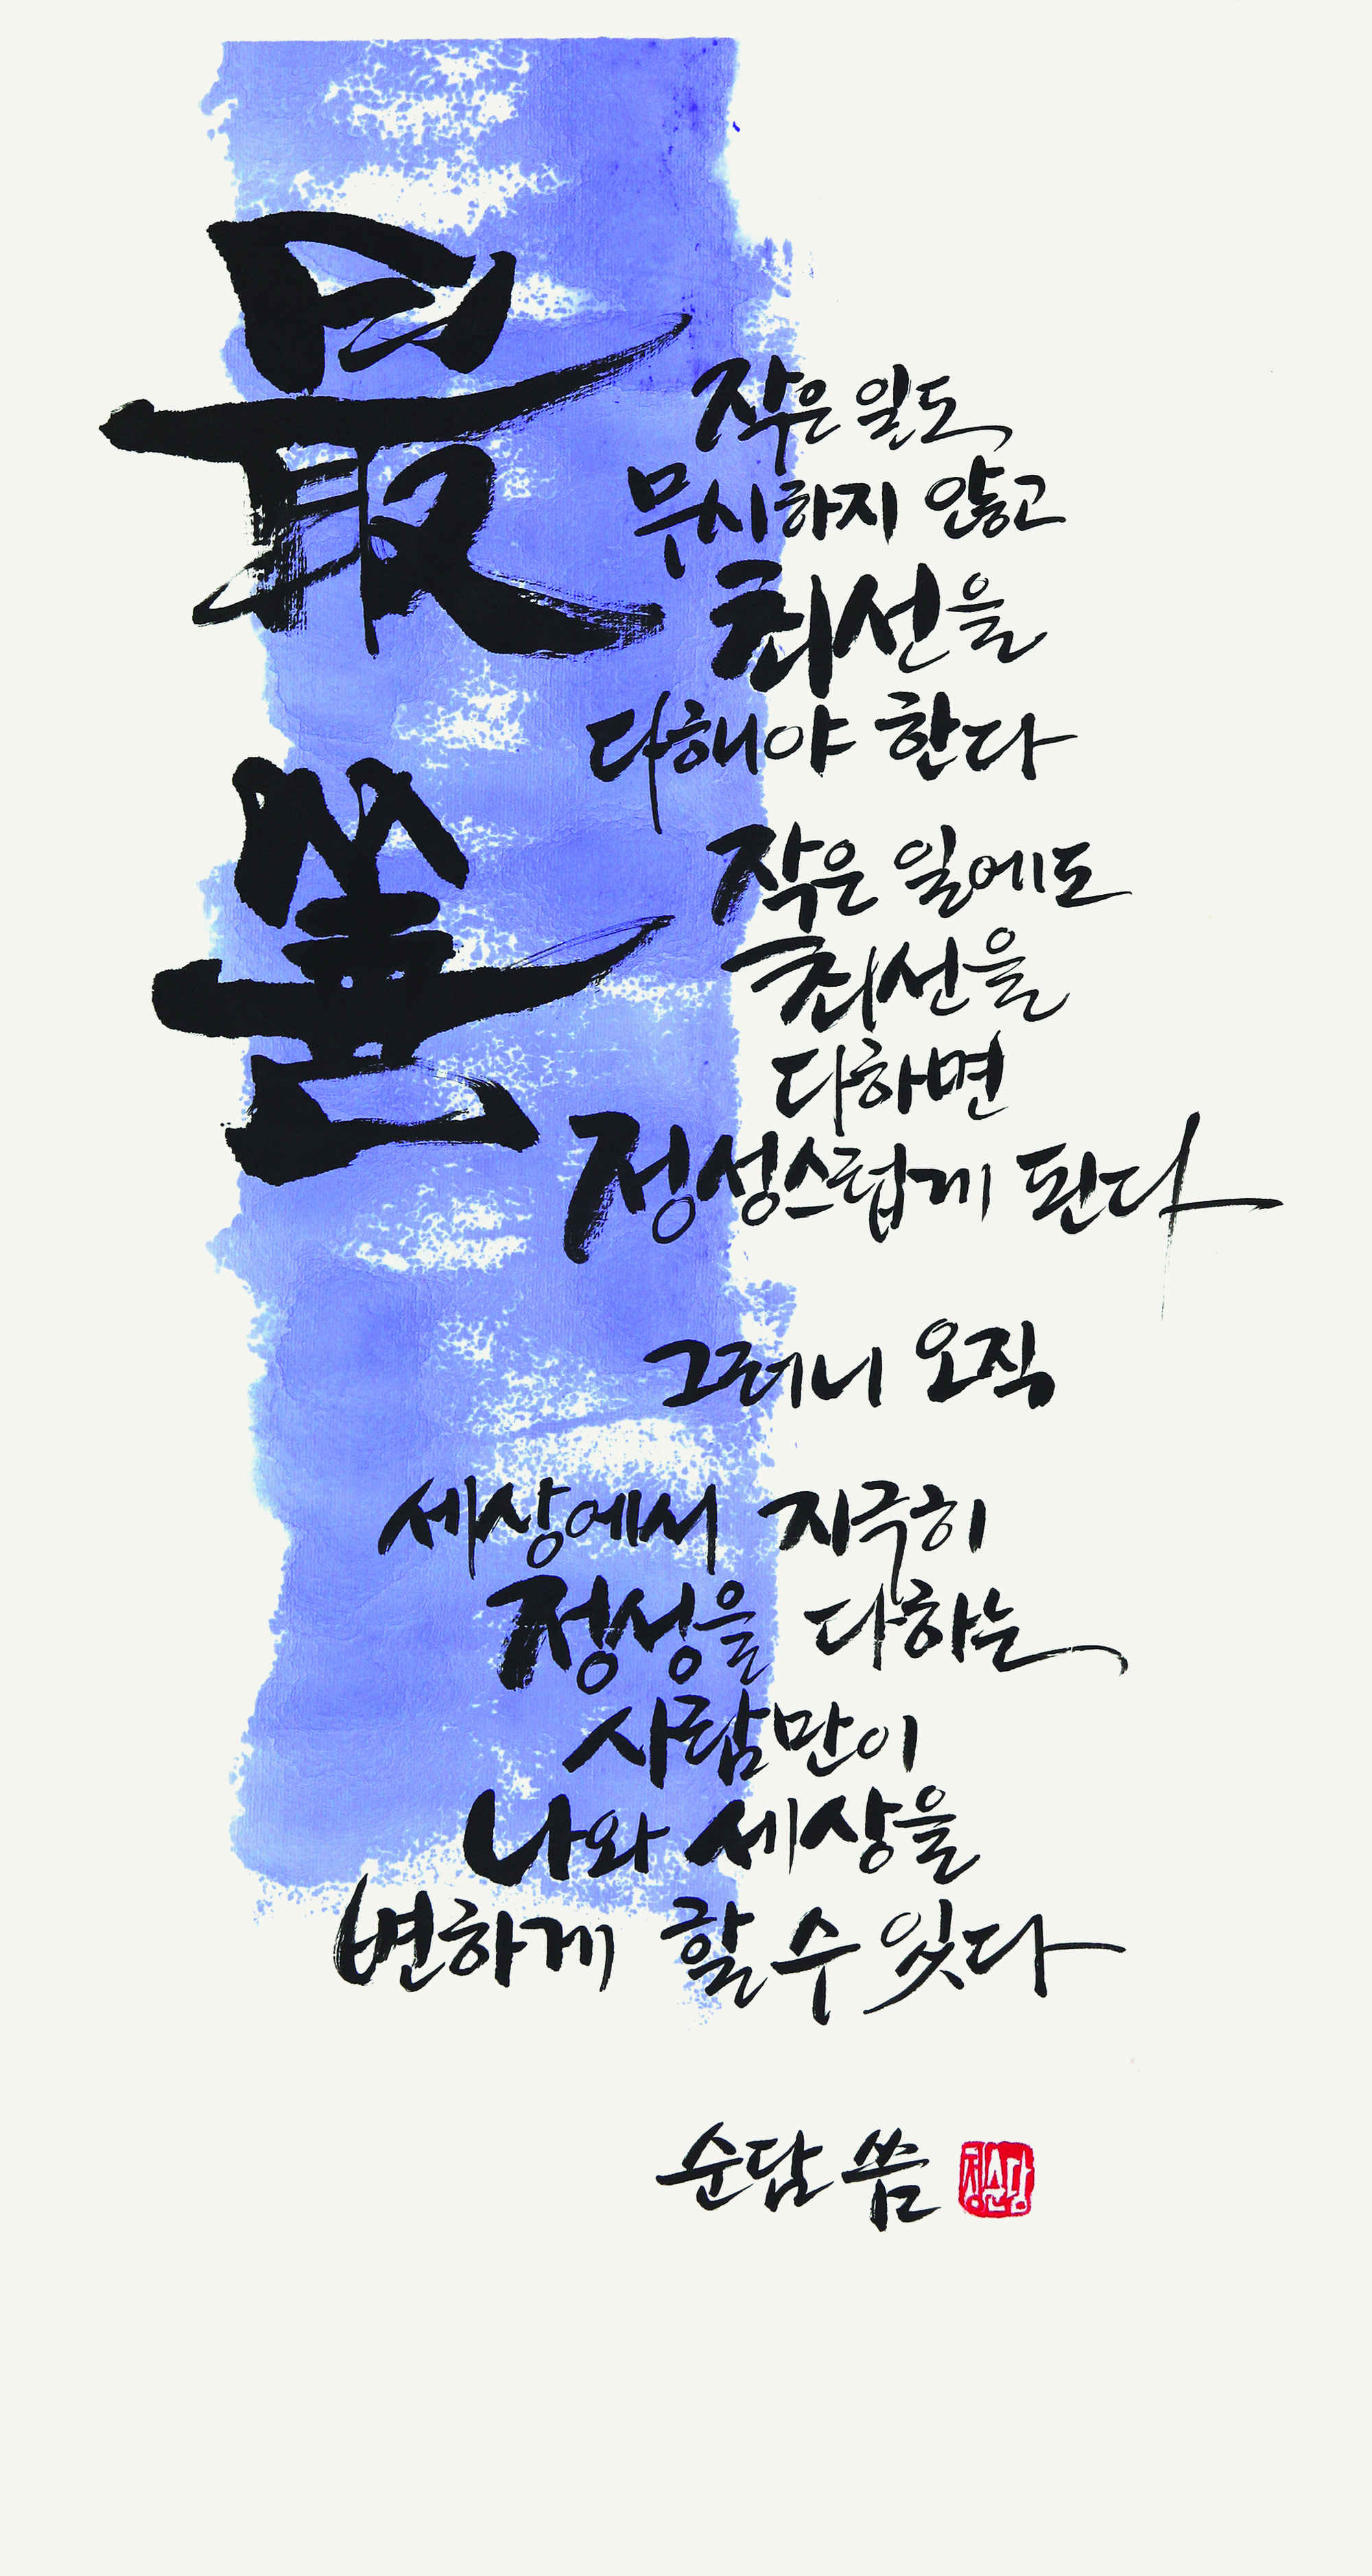 最善
작은 일도
무시하지 않고
최선을
다해야 한다
작은 일에도
최선을
다하면
정성스럽게 된다
그러니 오직
세상에서 지극히
정성을 다하는
사람만이
나와 세상을
변하게 할 수 있다
순담 씀